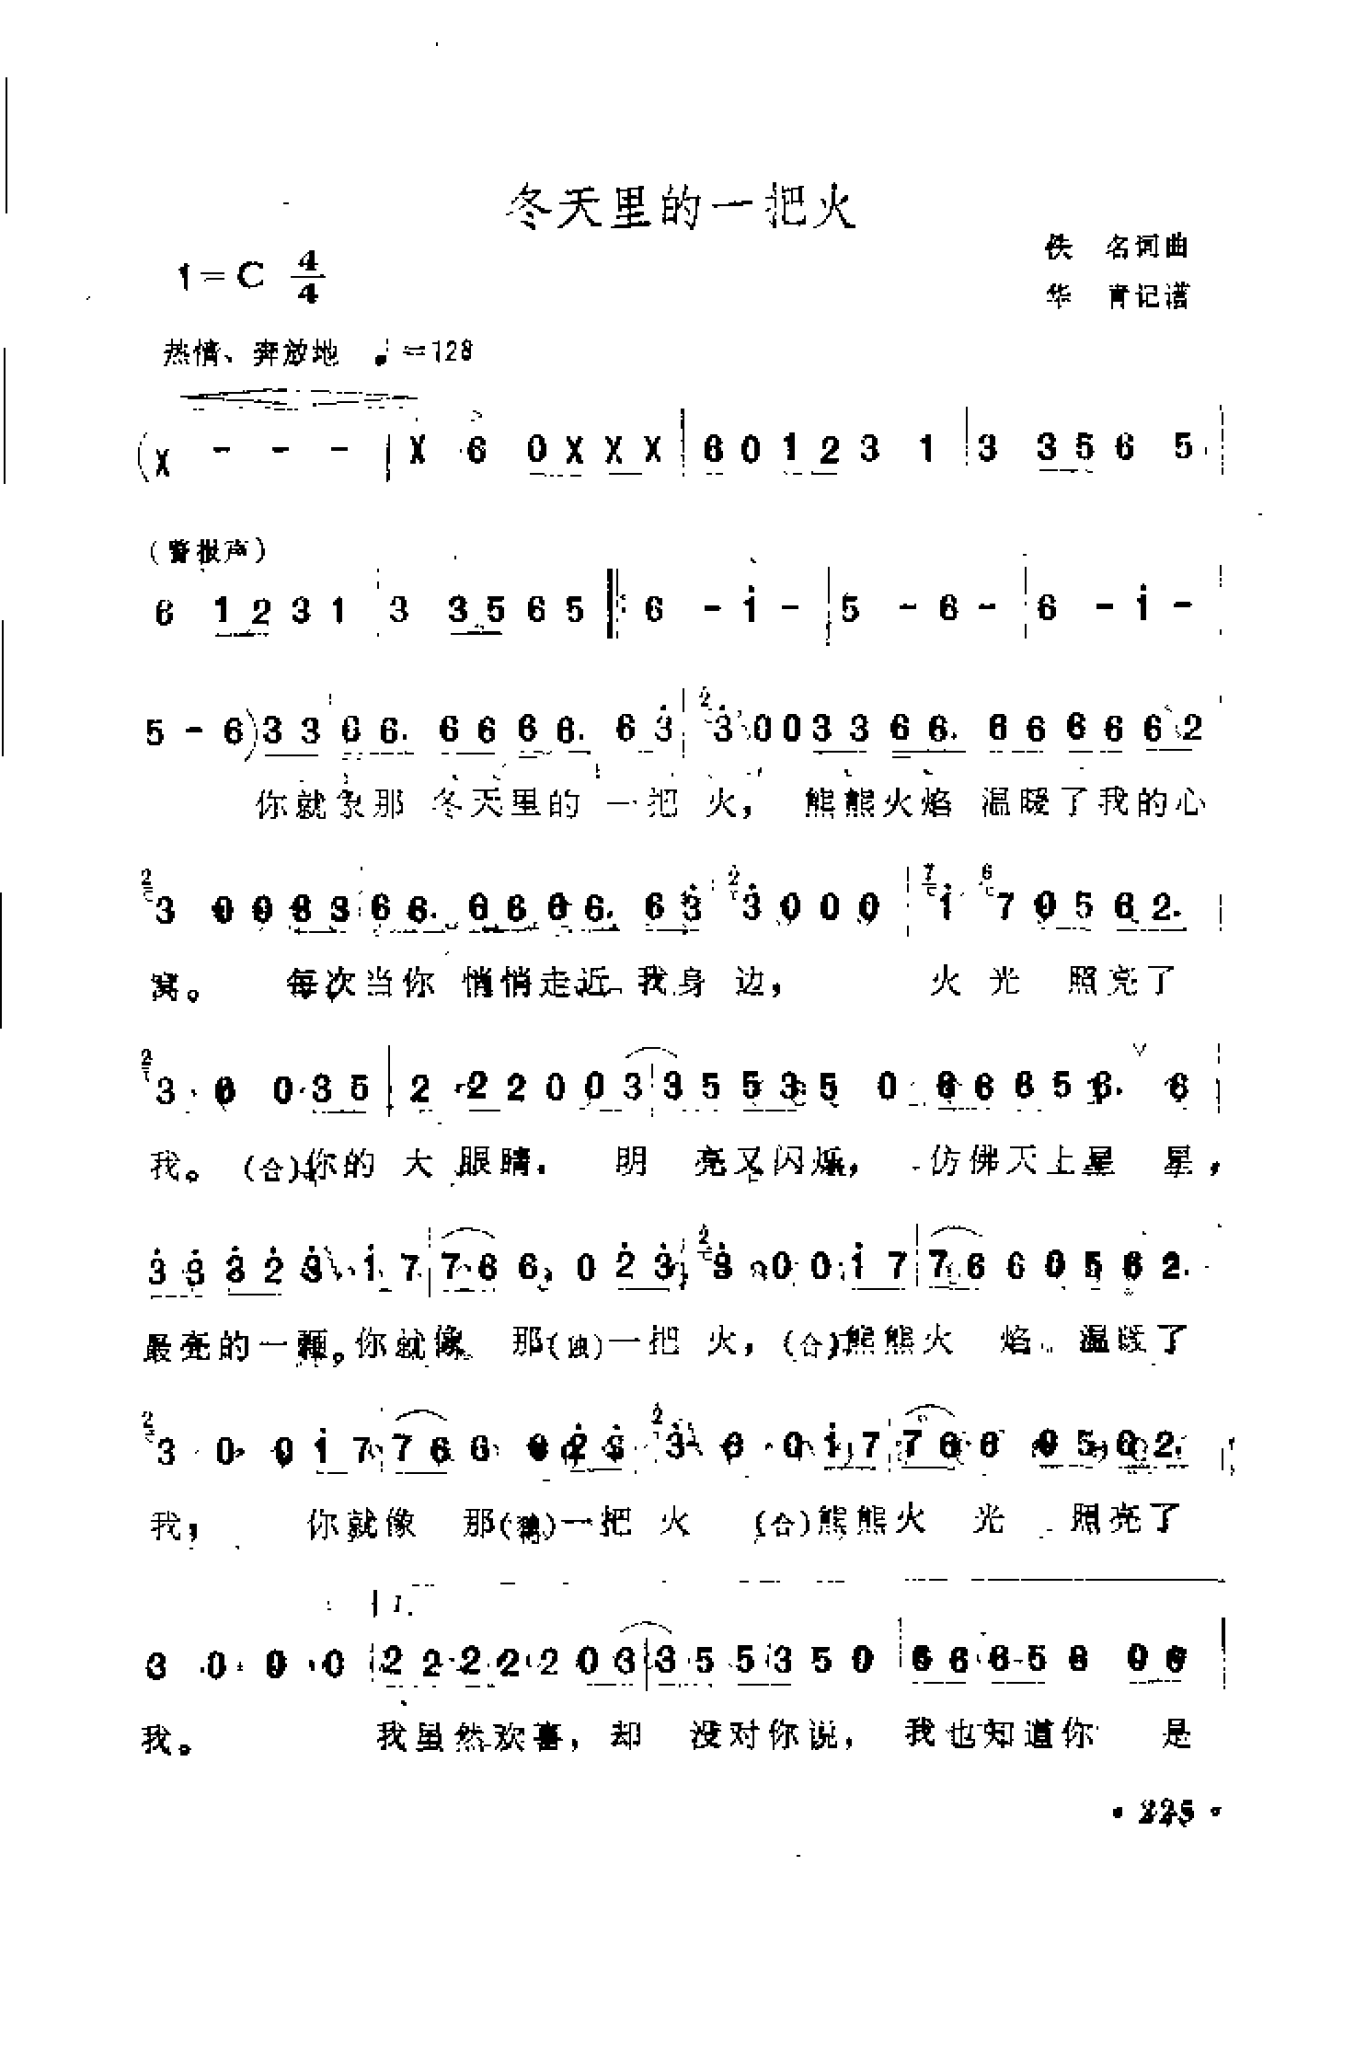 冬天里的一把火
佚 名词曲
1=C 4/4
华 青记谱
热情、奔放地 ♩=128
(X - - - | X 6 0X XX | 60 12 3 1 | 3 35 6 5 |
(警报声)
6 12 3 1 | 3 35 6 5 ‖: 6 - i - | 5 - 6 - | 6 - i - |
5 - 6) 33 | 66. 66 66. 63 | 3 0 0 33 66. 66 66 62
你就象那 冬天里的 一把 火， 熊熊火焰 温暖了我的心
3 0 0 33 66. 66 66. 63 | 3 0 0 0 | i 7 05 62. |
窝。 每次当你 悄悄走近 我身 边， 火 光 照亮了
3 0 0 35 | 2 22 0 03 | 35 53 5 0 66 65 6. 6 |
我。(合)你的 大 眼睛. 明 亮又闪烁， 仿佛天上星 星，
33 32 3 i7 | 76 6. 0 23 | 3 0 0 i7 | 76 6 05 62. |
最亮的一颗。你就像 那(独)一把 火，(合)熊熊火 焰 温暖了
3 0 0 i7 76 6 0 23 3 0 0 i7 76 6 05 62. |
我， 你就像 那(独)一把 火 (合)熊熊火 光 照亮了
1.
3 0 0 0 | 22 22 2 03 | 35 53 5 0 | 66 65 6 06 |
我。 我虽然欢喜，却 没对你说， 我也知道你 是
· 225 ·